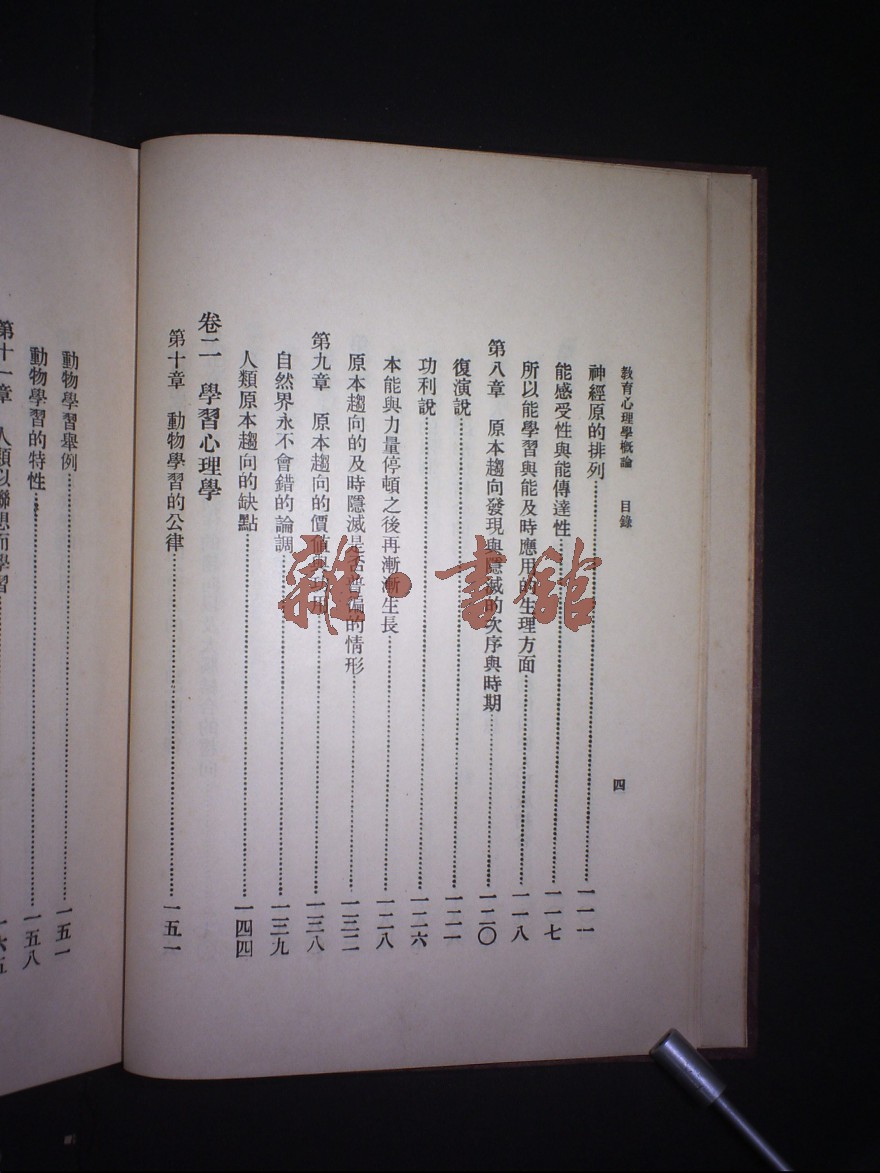 教育心理學概論 目錄 四
神經原的排列 一一一
能感受性與能傳達性 一一七
所以能學習與能及時應用的生理方面 一一八
第八章 原本趨向發現與隱滅的次序與時期 一二〇
復演說 一二一
功利說 一二六
本能與力量停頓之後再漸漸生長 一二八
原本趨向的及時隱滅是否普徧的情形 一三二
第九章 原本趨向的價值與功用 一三八
自然界永不會錯的論調 一三九
人類原本趨向的缺點 一四四
卷二 學習心理學
第十章 動物學習的公律 一五一
動物學習舉例 一五一
動物學習的特性 一五八
第十一章 人類以聯想而學習 一六五
雜·書館